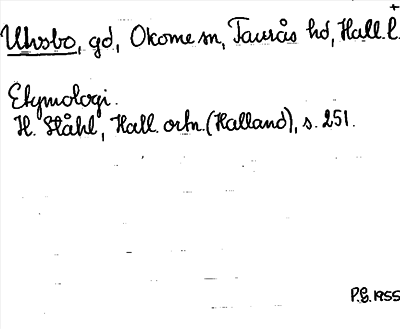 +
Uhrsbo, gd, Okome sn, Faurås hd, Hall. l.
Etymologi.
H. Ståhl, Hall. ortn. (Halland), s. 251.
P.G. 1955